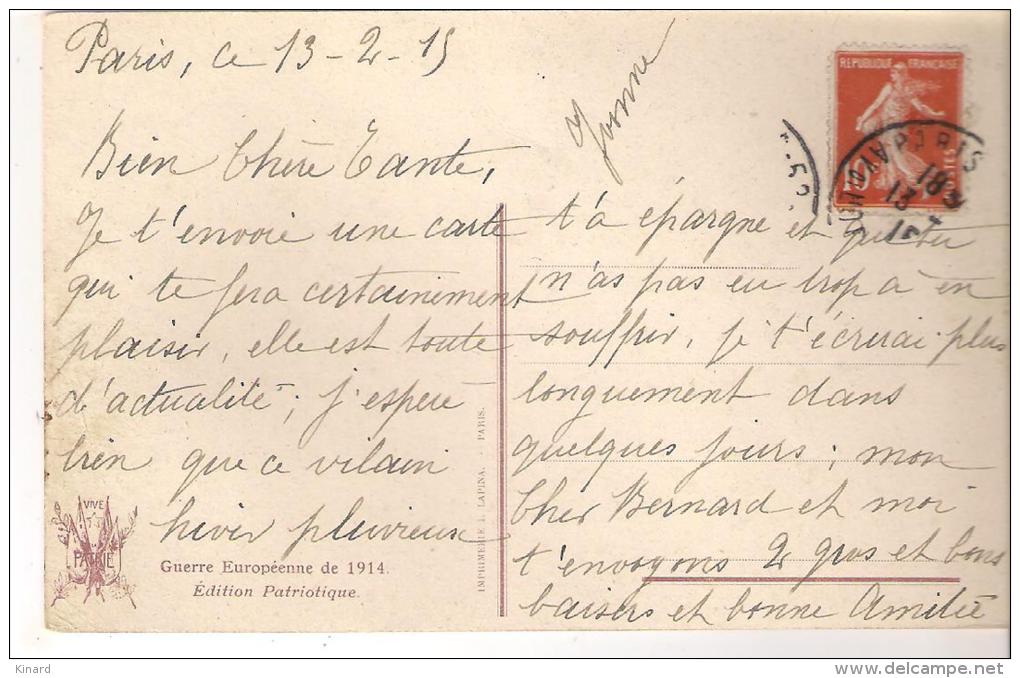 Paris, ce 13-2-15
Yvonne
Bien Chère Tante,
Je t'envoie une carte
qui te fera certainement
plaisir, elle est toute
d'actualité; j'espère
bien que ce vilain
hiver pluvieux
t'a épargné et que tu
n'as pas eu trop à en
souffrir, je t'écrirai plus
longuement dans
quelques jours; mon
Cher Bernard et moi
t'envoyons 2 gros et bons
baisers et bonne Amitié
REPUBLIQUE FRANÇAISE
PARIS
13
VIVE
LA
PATRIE
Guerre Européenne de 1914.
Édition Patriotique.
IMPRIMERIE I. LAPINA. - PARIS.
Kinard
www.delcampe.net